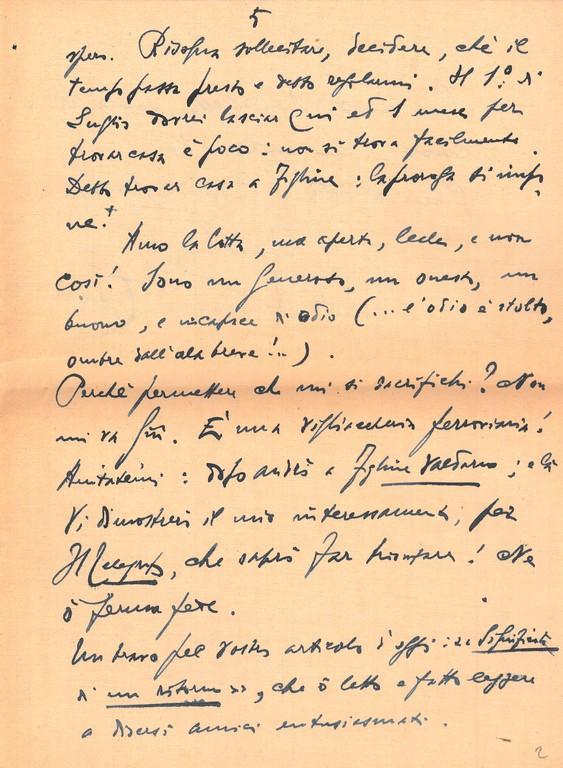 5
spero. Bisogna sollecitare, decidere, chè il
tempo passa presto e debbo regolarmi. Il 1º di
Luglio dovrei lasciar Qui ed 1 mese per
trovar casa è poco: non si trova facilmente.
Debbo trovar casa a Figline: la proroga si impo
ne!
Amo la lotta, ma aperta, leale, e non
così! Sono un generoso, un onesto, un
buono, e incapace di odio (... e l'odio è stolto,
ombre dall'ala breve!..) .
Perchè permettere che mi si sacrifichi? Non
mi va giù. È una vigliaccheria ferroviaria!
Aiutatemi: dopo andrò a Figline Valdarno; e là
Vi dimostrerò il mio interessamento, per
Il Telegrafo, che saprò far trionfare! Ne
ò ferma fede.
Un bravo pel vostro articolo d'oggi: << Significato
di un ritorno >>, che ò letto e fatto leggere
a diversi amici entusiasmati.
2